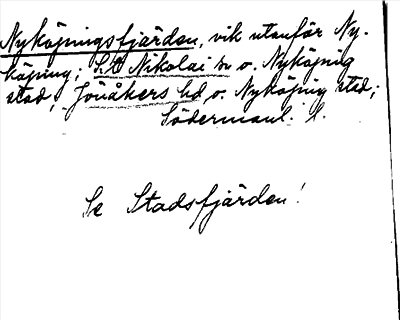 Nyköpingsfjärden, vik utanför Ny-
köping; S:t Nikolai sn o. Nyköping
stad, Jönåkers hd o. Nyköping stad;
Södermanl. l.
Se Stadsfjärden!